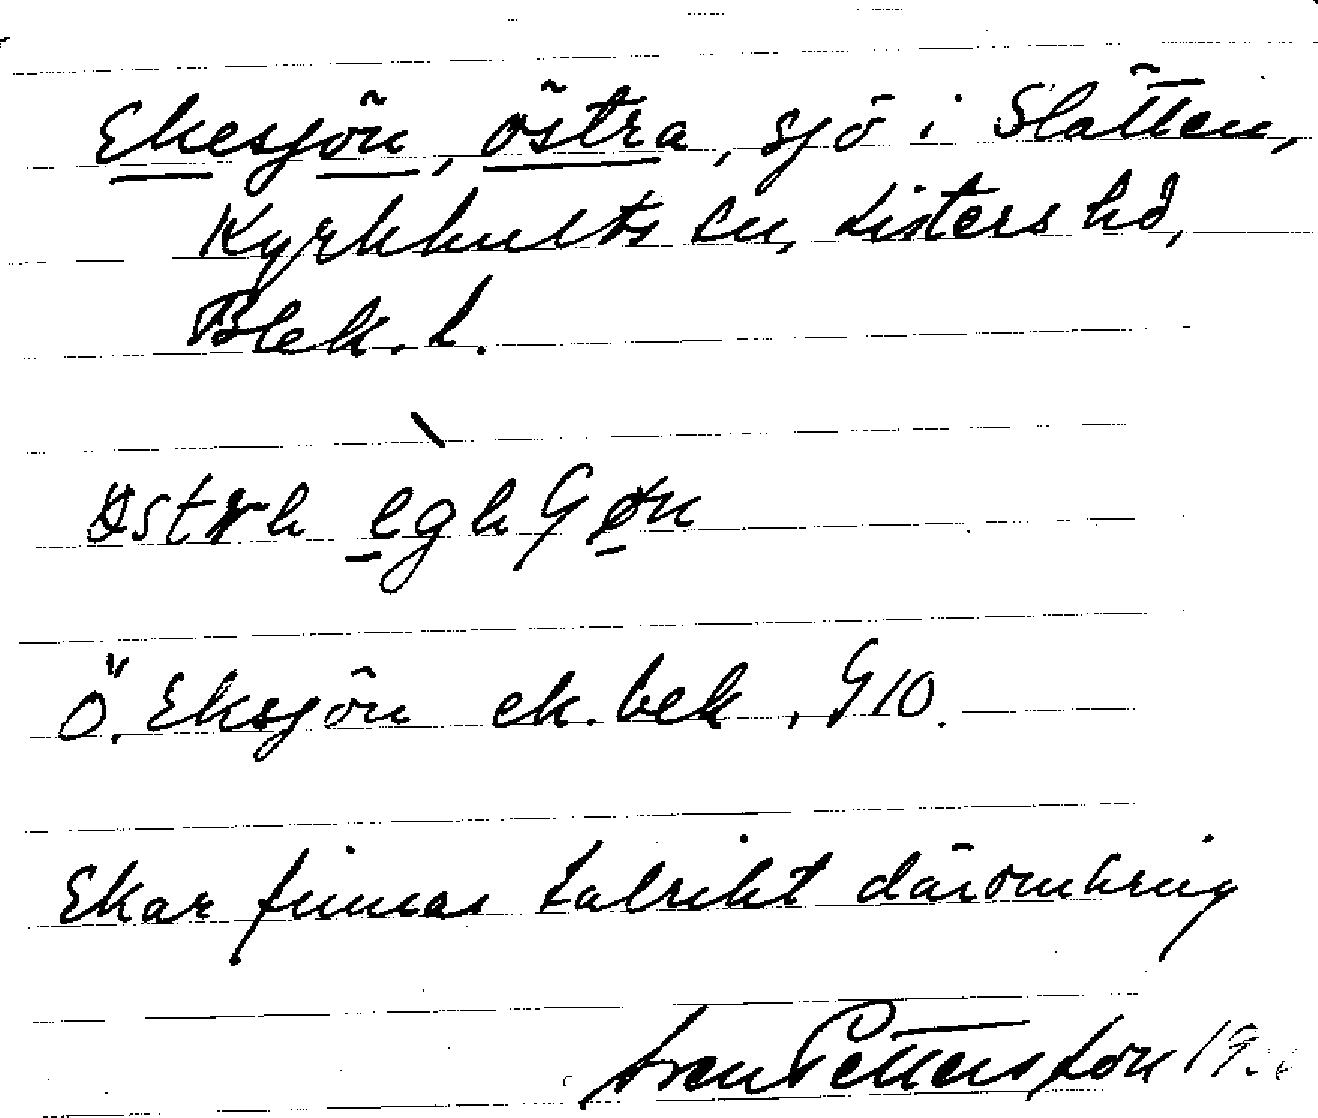 Ekesjön, östra, sjö i Slätten,
Kyrkhults sn, Listers hd,
Blek. l.
Ö. Eksjön ek. bek. G10.
Ekar finnas talrikt däromkring
Sven Pettersson